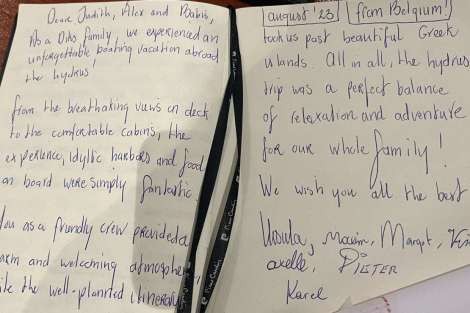 Dear Judith, Alex and Babis,
As a Dito family, we experienced an
unforgettable boating vacation abroad
the hydrus!
From the breathtaking views on deck
to the comfortable cabins, the
experience, idyllic harbors and food
on board were simply fantastic.
You as a friendly crew provided a
warm and welcoming atmosphere,
ile the well-planned itinerary
august '23 (from Belgium!)
took us past beautiful Greek
islands. All in all, the hydrus
trip was a perfect balance
of relaxation and adventure
for our whole family!
We wish you all the best
Ursula, Maxim, Margot,
axelle, DIETER
Karel